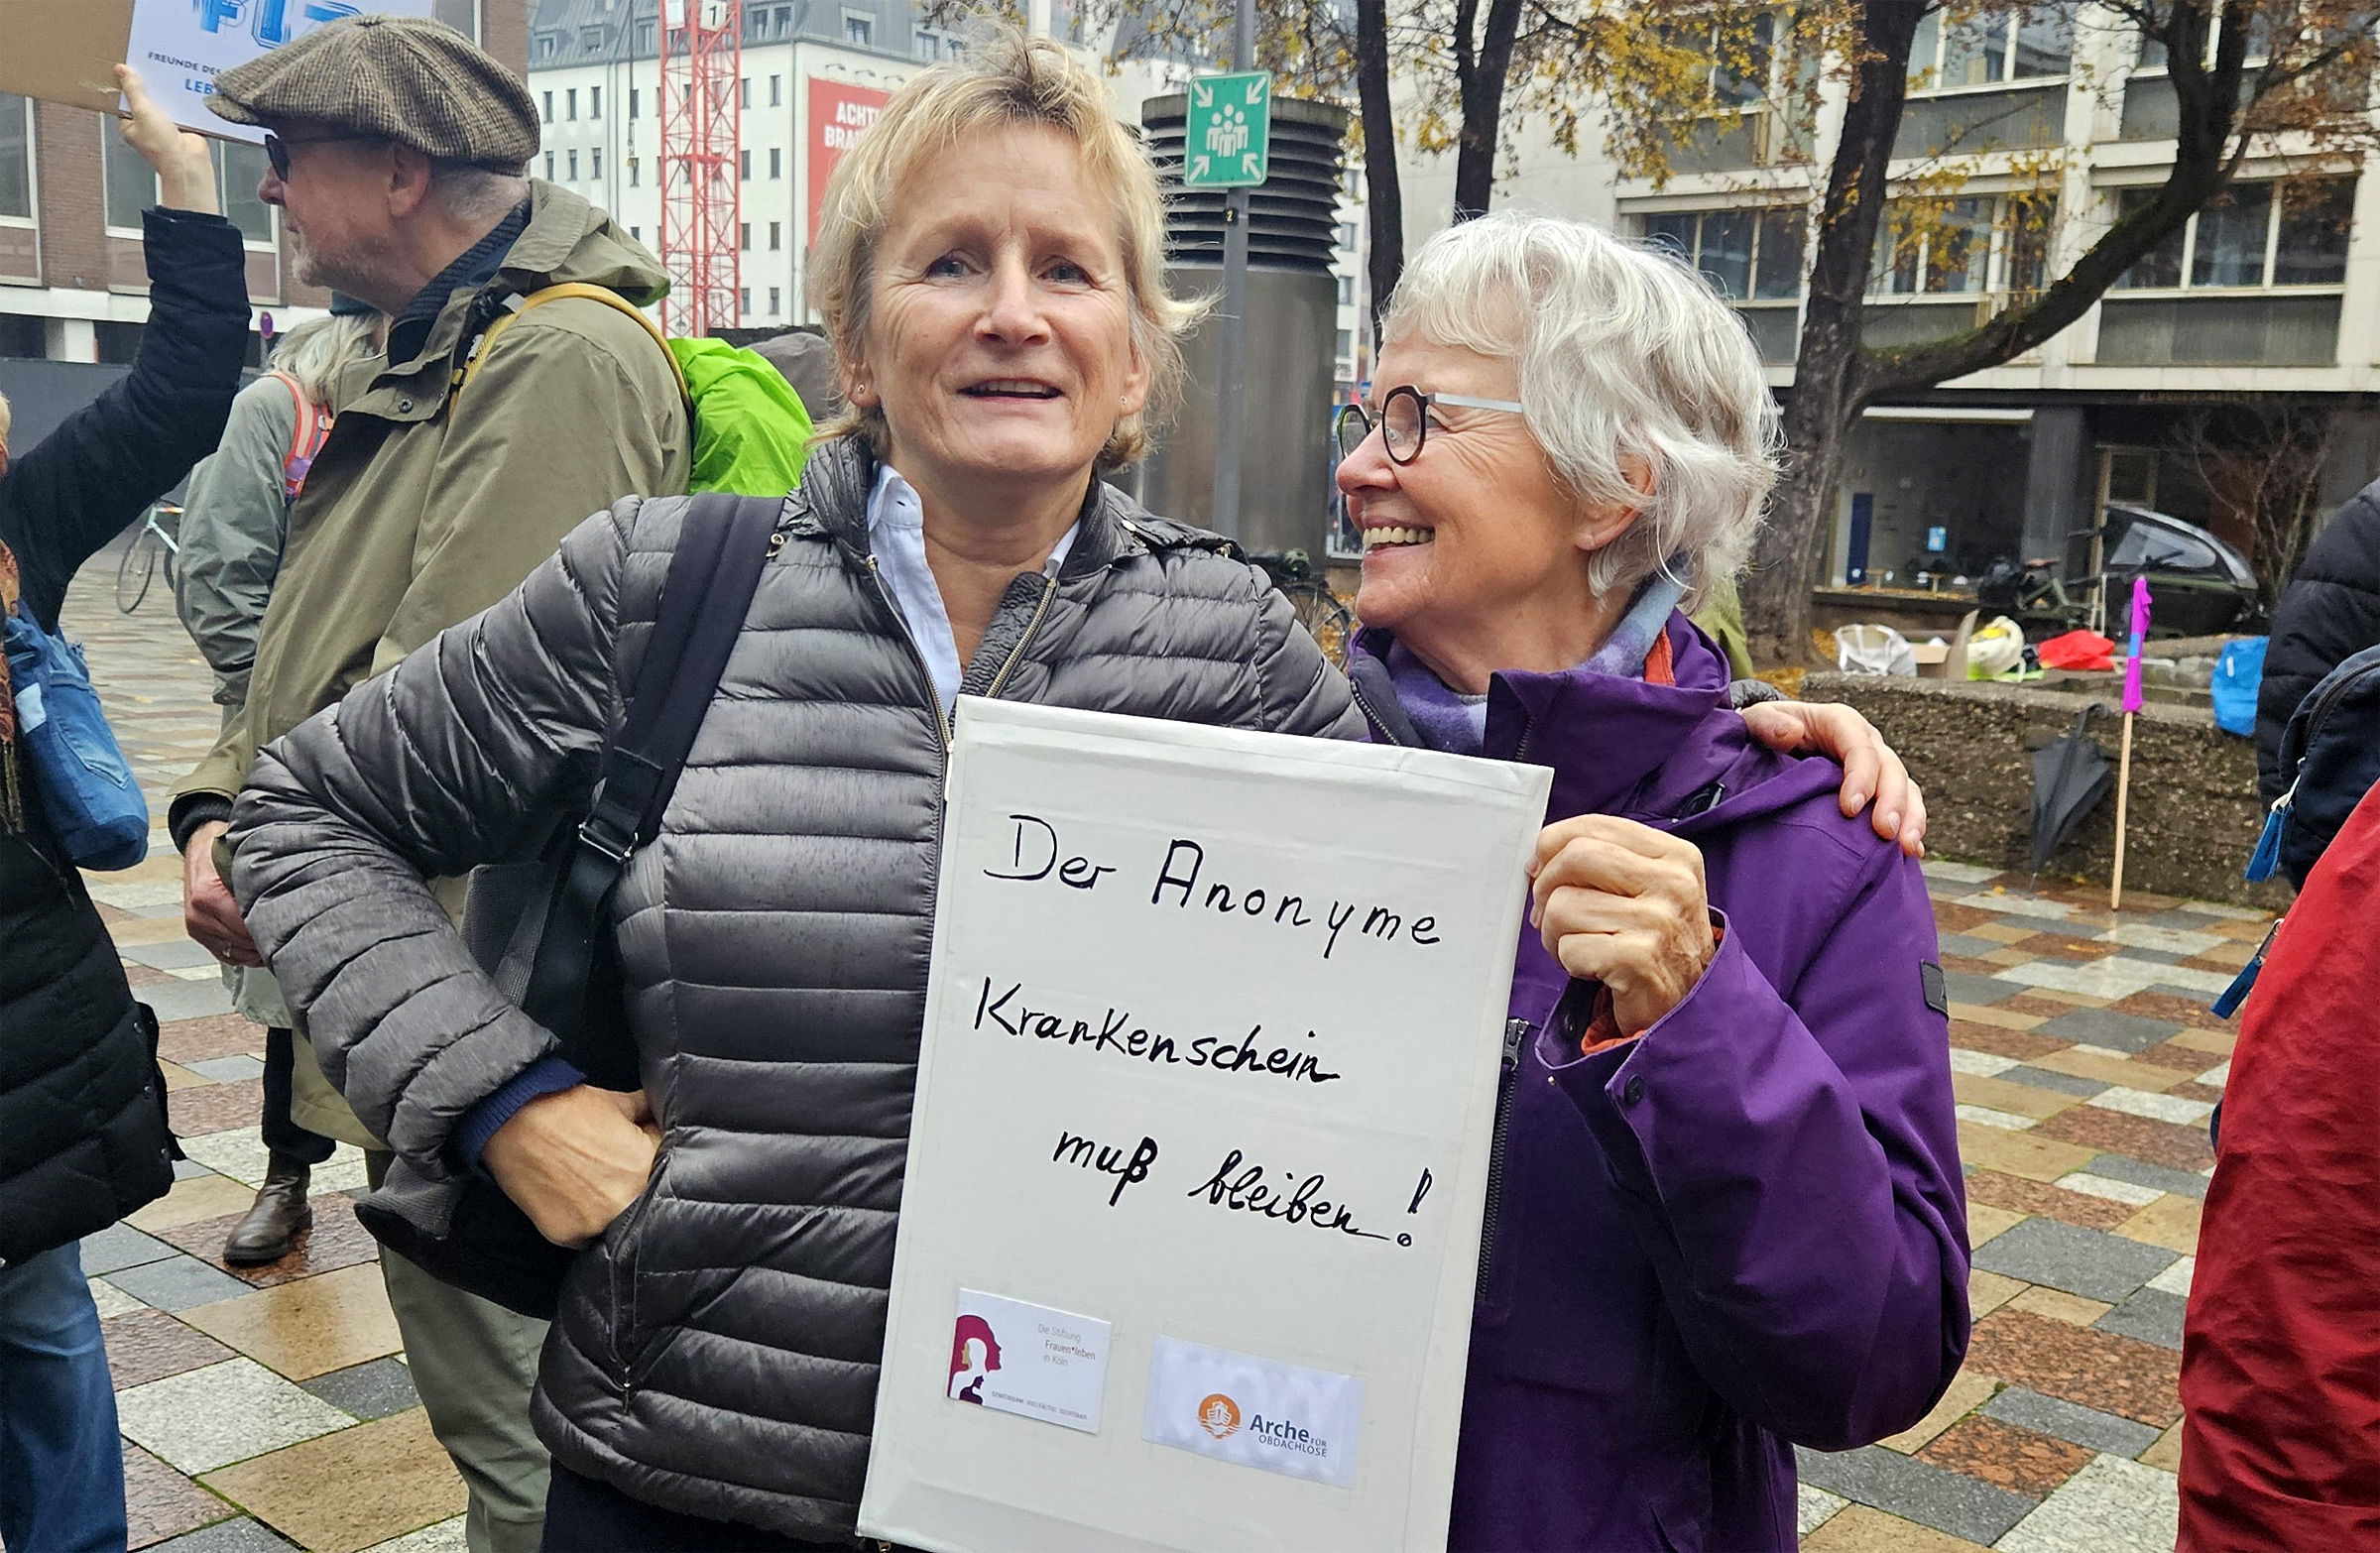 FREUNDE DES
LEB
1
ACHT
BRA
2
Der Anonyme
Krankenschein
muß bleiben!
Die Stiftung
Frauen*leben
in Köln
GEMEINSAM · VIELFÄLTIG · SICHTBAR
Arche FÜR
OBDACHLOSE